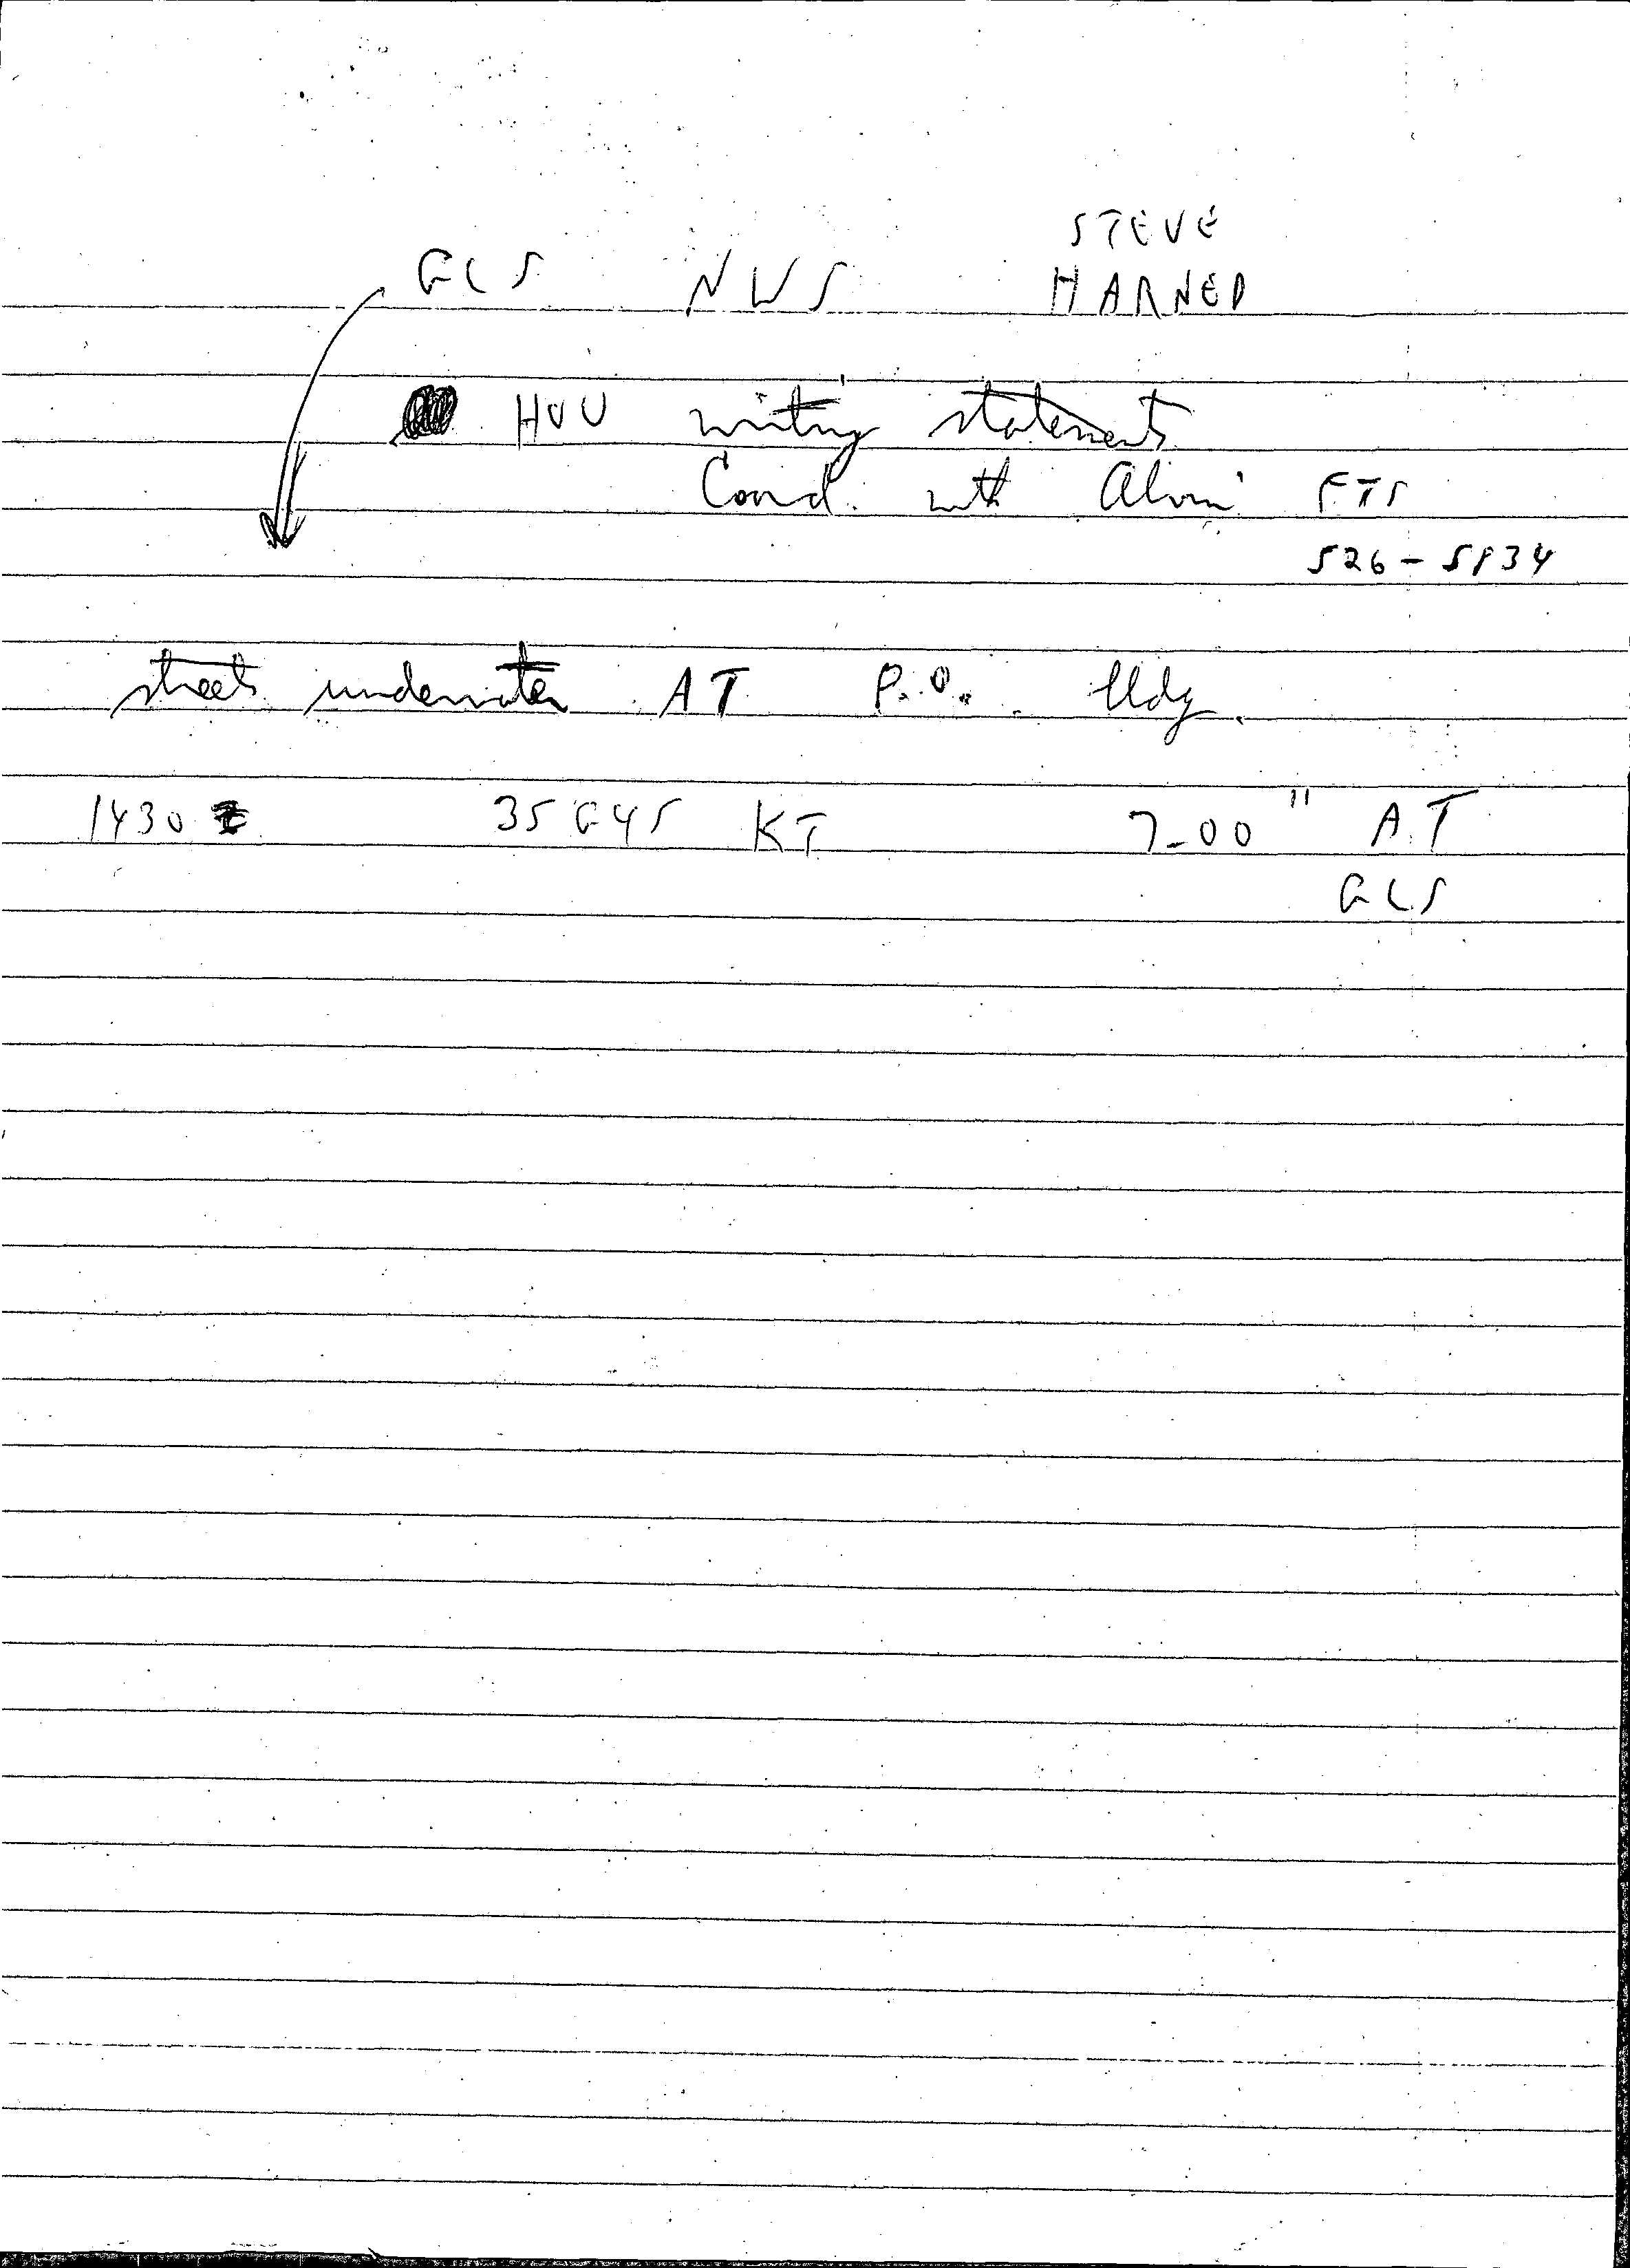 STEVE
GLS NWS HARNED
HOU writing statements
Coord. with Alvin FTS
526-5834
streets underwater AT P.O. bldg.
1430 Z 35G45 KT 7.00" AT
GLS